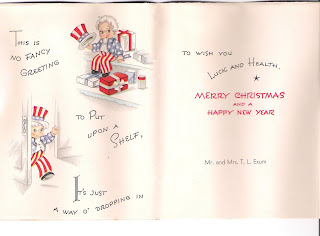 This is
no fancy
Greeting
to Put
upon a
Shelf,
It's just
a way o' dropping in
to wish you
Luck and Health,
Merry Christmas
and a
Happy New Year
Mr. and Mrs. T. L. Exum